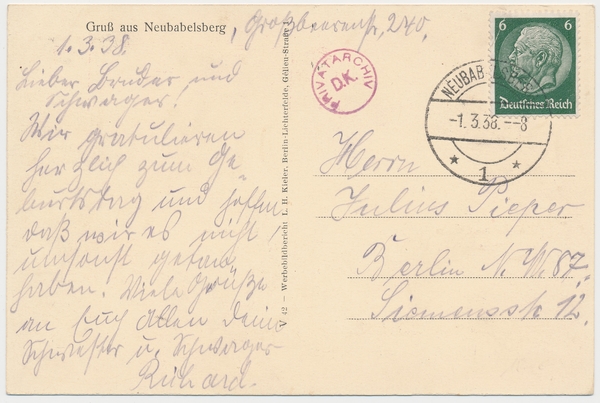 Gruß aus Neubabelsberg
, Großbeerenstr, 240,
1.3.38.
Lieber Bruder und
Schwager!
Wir gratulieren
herzlich zum Ge-
burtstag und hoffen
daß wir es nicht
umsonst getan
haben. Viele Grüße
an Euch Allen Deine
Schwester u. Schwager
Richard.
V 42 — Werbebildbericht L. H. Kieler, Berlin-Lichterfelde, Gélieu-Straße
PRIVATARCHIV
D.K.
6 6
Deutsches Reich
NEUBAB
-1.3.38.--8
* 1 *
Herrn
Julius Pieper
Berlin N.W.87.
Siemensstr 12.